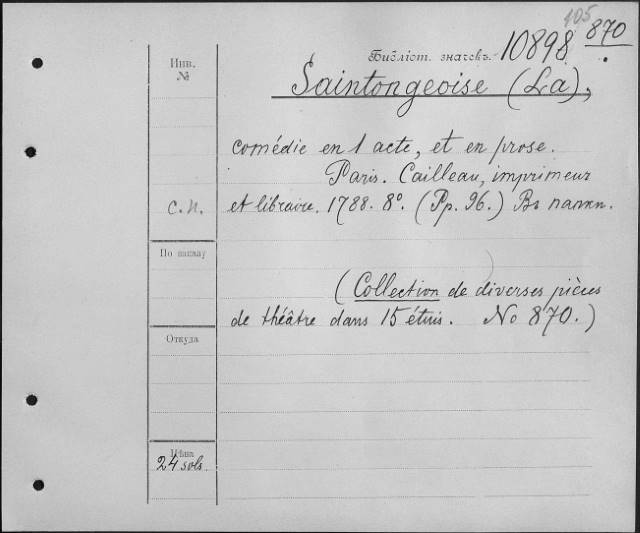 105
870
Библіот. значекъ. 10898
Инв.
№
Saintongeoise (La),
comédie en 1 acte, et en prose.
Paris. Cailleau, imprimeur
С.П. et libraire. 1788. 8°. (Pp. 96.) Въ папкѣ.
По шкапу
(Collection de diverses pièces
de théâtre dans 15 étuis. No 870.)
Откуда
Цѣна
24 sols.